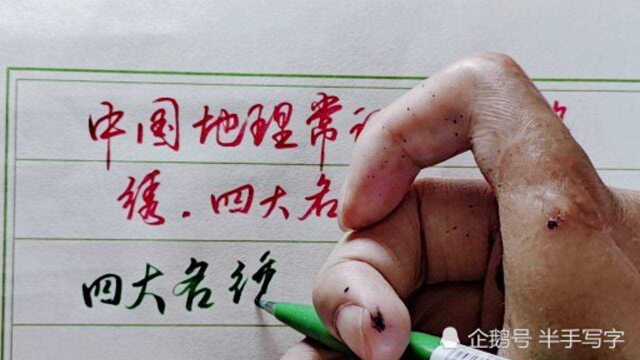 中国地理常
绣.四大名
四大名纟
企鹅号 半手写字